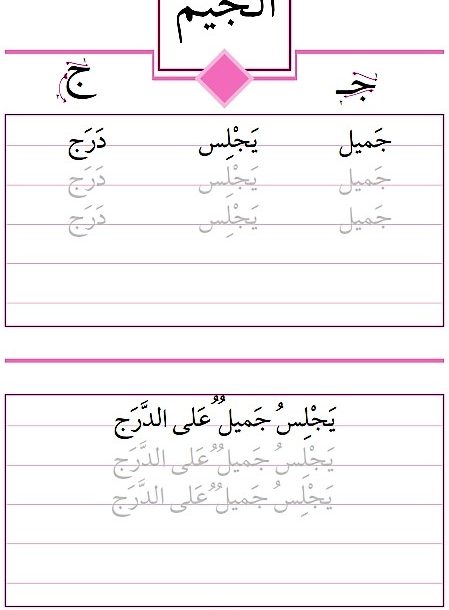 الجيم
جـ ج
جَميل يَجْلِس دَرَج
جَميل يَجْلِس دَرَج
جَميل يَجْلِس دَرَج
يَجْلِسُ جَميلٌ عَلى الدَّرَج
يَجْلِسُ جَميلٌ عَلى الدَّرَج
يَجْلِسُ جَميلٌ عَلى الدَّرَج